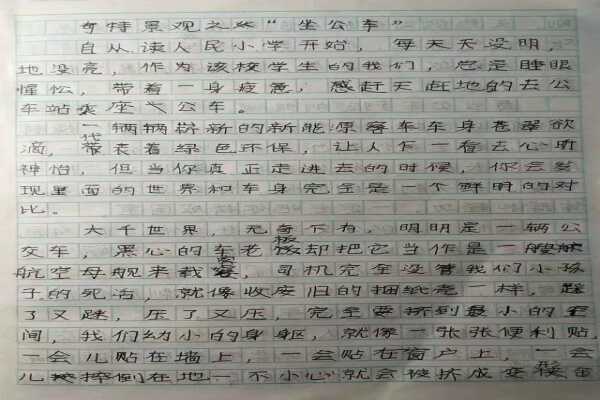 奇特景观之灬“坐公车”
自从读人民小学开始，每天天没明，
地没亮，作为该校学生的我们，总是睡眼
惺忪，带着一身疲惫，感赶天赶地的去公
车站坐公车。
一辆辆崭新的新能源客车车身苍翠欲
滴，带表着绿色环保，让人乍一看去心旷
神怡，但当你真正走进去的时候，你会发
现里面的世界和车身完全是一个鲜明的对
比。
大千世界，无奇不有，明明是一辆公
交车，黑心的车老板却把它当作是一艘
航空母舰来载客，司机完全没管我们小孩
子的死活，就像收废旧的捆纸壳一样，踩
了又踩，压了又压，完全要挤到最小的空
间，我们幼小的身躯，就像一张张便利贴，
一会儿贴在墙上，一会贴在窗户上，一会
儿摔倒在地一不小心就会被挤成变